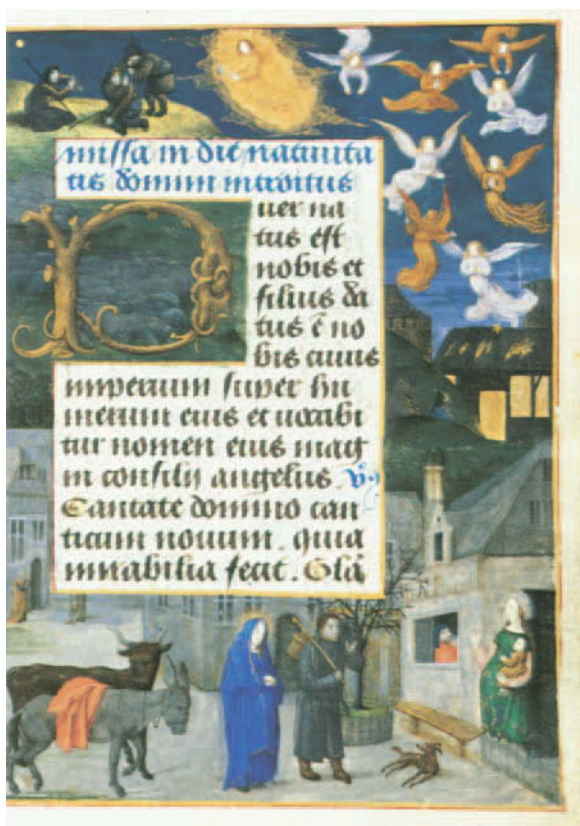 missa in die natiuita
tis domini introitus
Puer na
tus est
nobis et
filius da
tus ē no
bis cuius
imperium super hu
merum eius et uocabi
tur nomen eius mag
ni consilij angelus. V
Cantate domino can
ticum nouum. quia
mirabilia fecit. Glā